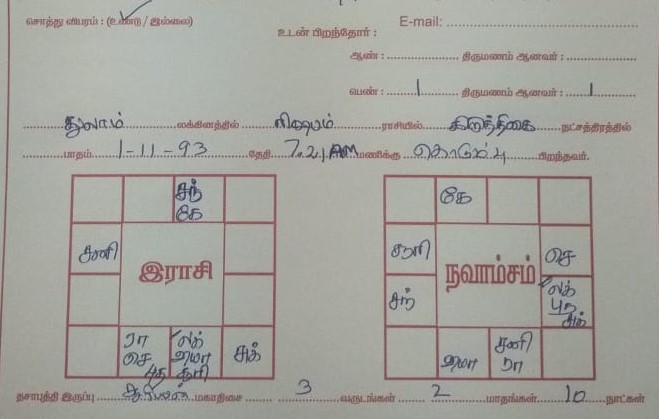 சொத்து விபரம் : (உண்டு / இல்லை)
E-mail:
உடன் பிறந்தோர் :
ஆண் : திருமணம் ஆனவர் :
பெண் : 1 திருமணம் ஆனவர் : 1
துலாம் லக்னத்தில் ரிஷபம் ராசியில் கிருத்திகை நட்சத்திரத்தில்
பாதம் 1-11-93 தேதி 7.21 AM மணிக்கு கொழும்பு பிறந்தவர்.
சந்
கே
கே
சனி
செ
இராசி
நவாம்சம்
சந்
லக்
புத
சுக்
ரா
செ
புத
லக்
சுக்
சனி
ரா
தசாபுத்தி இருப்பு மகாதிசை 3 வருடங்கள் 2 மாதங்கள் 10 நாட்கள்